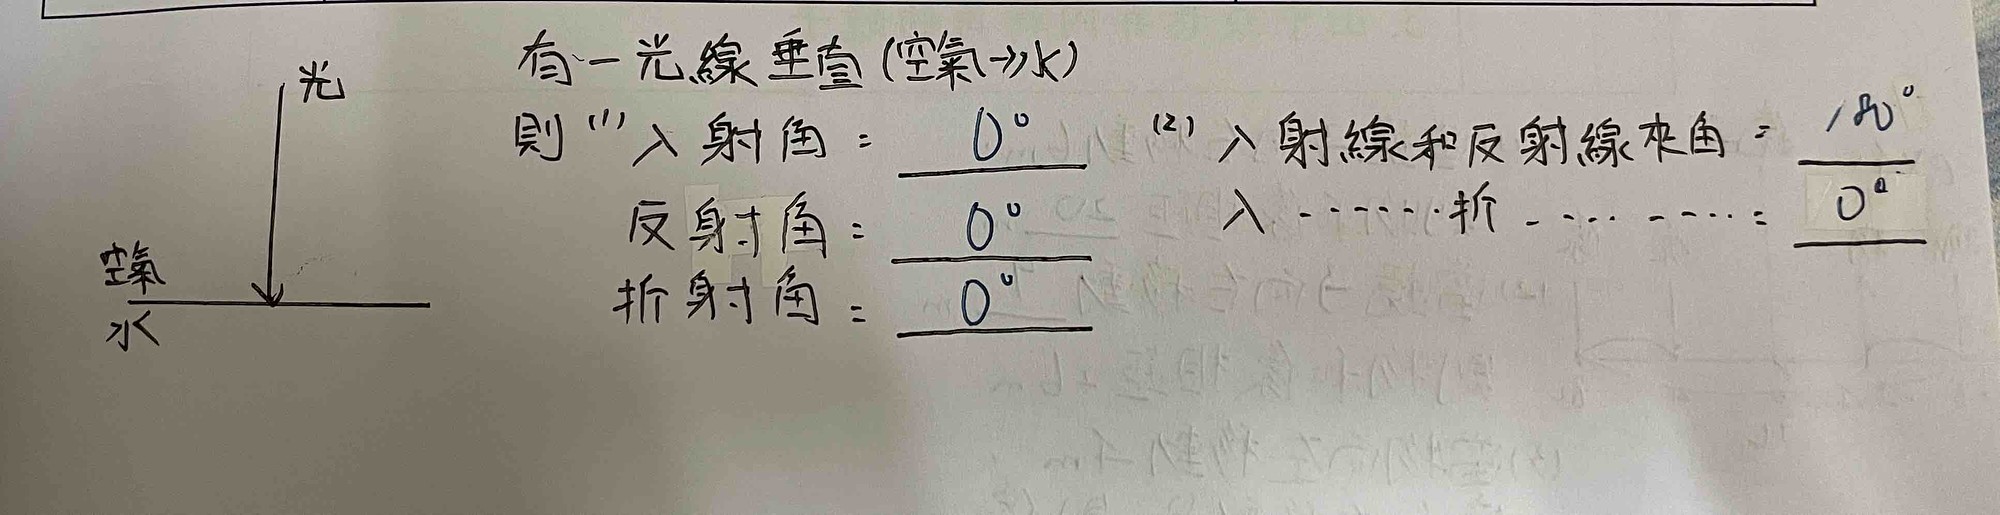 光
空氣
水
有一光線垂直(空氣→水)
則(1)入射角= 0°
反射角= 0°
折射角= 0°
(2)入射線和反射線夾角= 180°
入······折··········= 0°